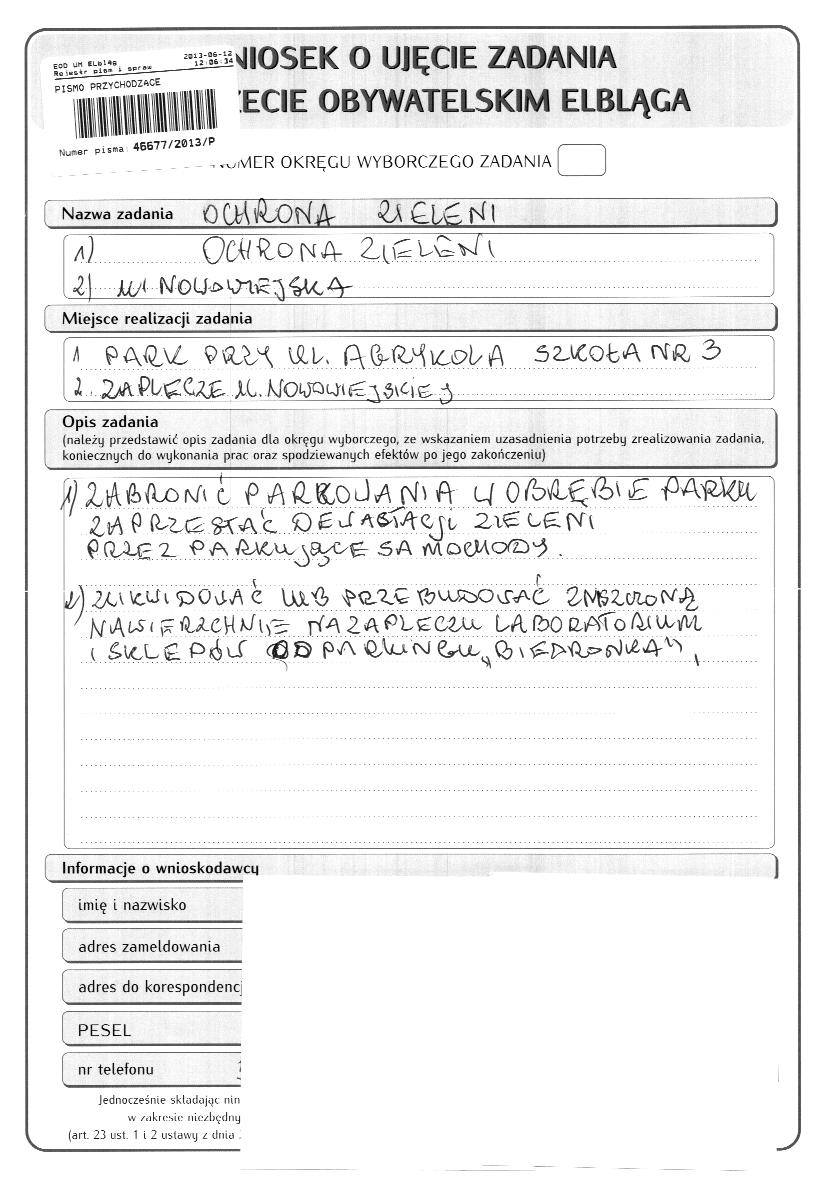 NIOSEK O UJĘCIE ZADANIA
ZECIE OBYWATELSKIM ELBLĄGA
EOD UM Elbląg 2013-06-12
Rejestr pism i spraw 12:06:34
PISMO PRZYCHODZĄCE
Numer pisma: 46677/2013/P
NUMER OKRĘGU WYBORCZEGO ZADANIA
Nazwa zadania OCHRONA ZIELENI
1) OCHRONA ZIELENI
2) UL NOWOWIEJSKA
Miejsce realizacji zadania
1 PARK PRZY UL. AGRYKOLA SZKOŁA NR 3
2. ZAPLECZE UL. NOWOWIEJSKIEJ
Opis zadania
(należy przedstawić opis zadania dla okręgu wyborczego, ze wskazaniem uzasadnienia potrzeby zrealizowania zadania,
koniecznych do wykonania prac oraz spodziewanych efektów po jego zakończeniu)
1) ZABRONIĆ PARKOWANIA W OBRĘBIE PARKU
ZAPRZESTAĆ DEWASTACJI ZIELENI
PRZEZ PARKUJĄCE SAMOCHODY.
2) ZLIKWIDOWAĆ LUB PRZEBUDOWAĆ ZNISZCZONĄ
NAWIERZCHNIE NA ZAPLECZU LABORATORIUM
I SKLEPÓW OD PARKINGU „BIEDRONKA"
Informacje o wnioskodawcy
imię i nazwisko
adres zameldowania
adres do korespondencj
PESEL
nr telefonu
Jednocześnie składając nin
w zakresie niezbędny
(art. 23 ust. 1 i 2 ustawy z dnia